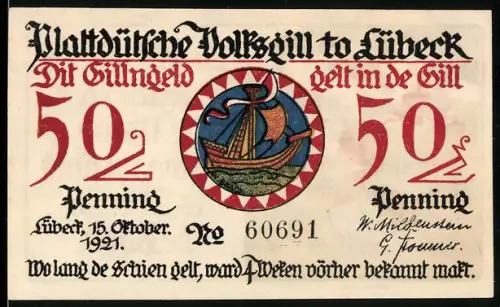 Plattdütsche Volksgill to Lübeck
Dit Gillngeld gelt in de Gill
50 50
Penning Penning
Lübeck, 15. Oktober. 1921.
No 60691
W. Mildenstein
Wo lang de Schien gelt, ward 4 Weken vörher bekannt makt.